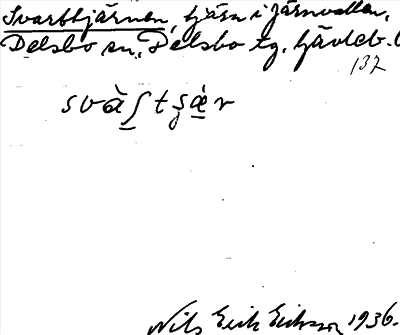 Svarttjärnen, tjärn i Järnvallen,
Delsbo sn, Delsbo tg, Gävleb. l
132
Nils Erik Eriksson 1936.